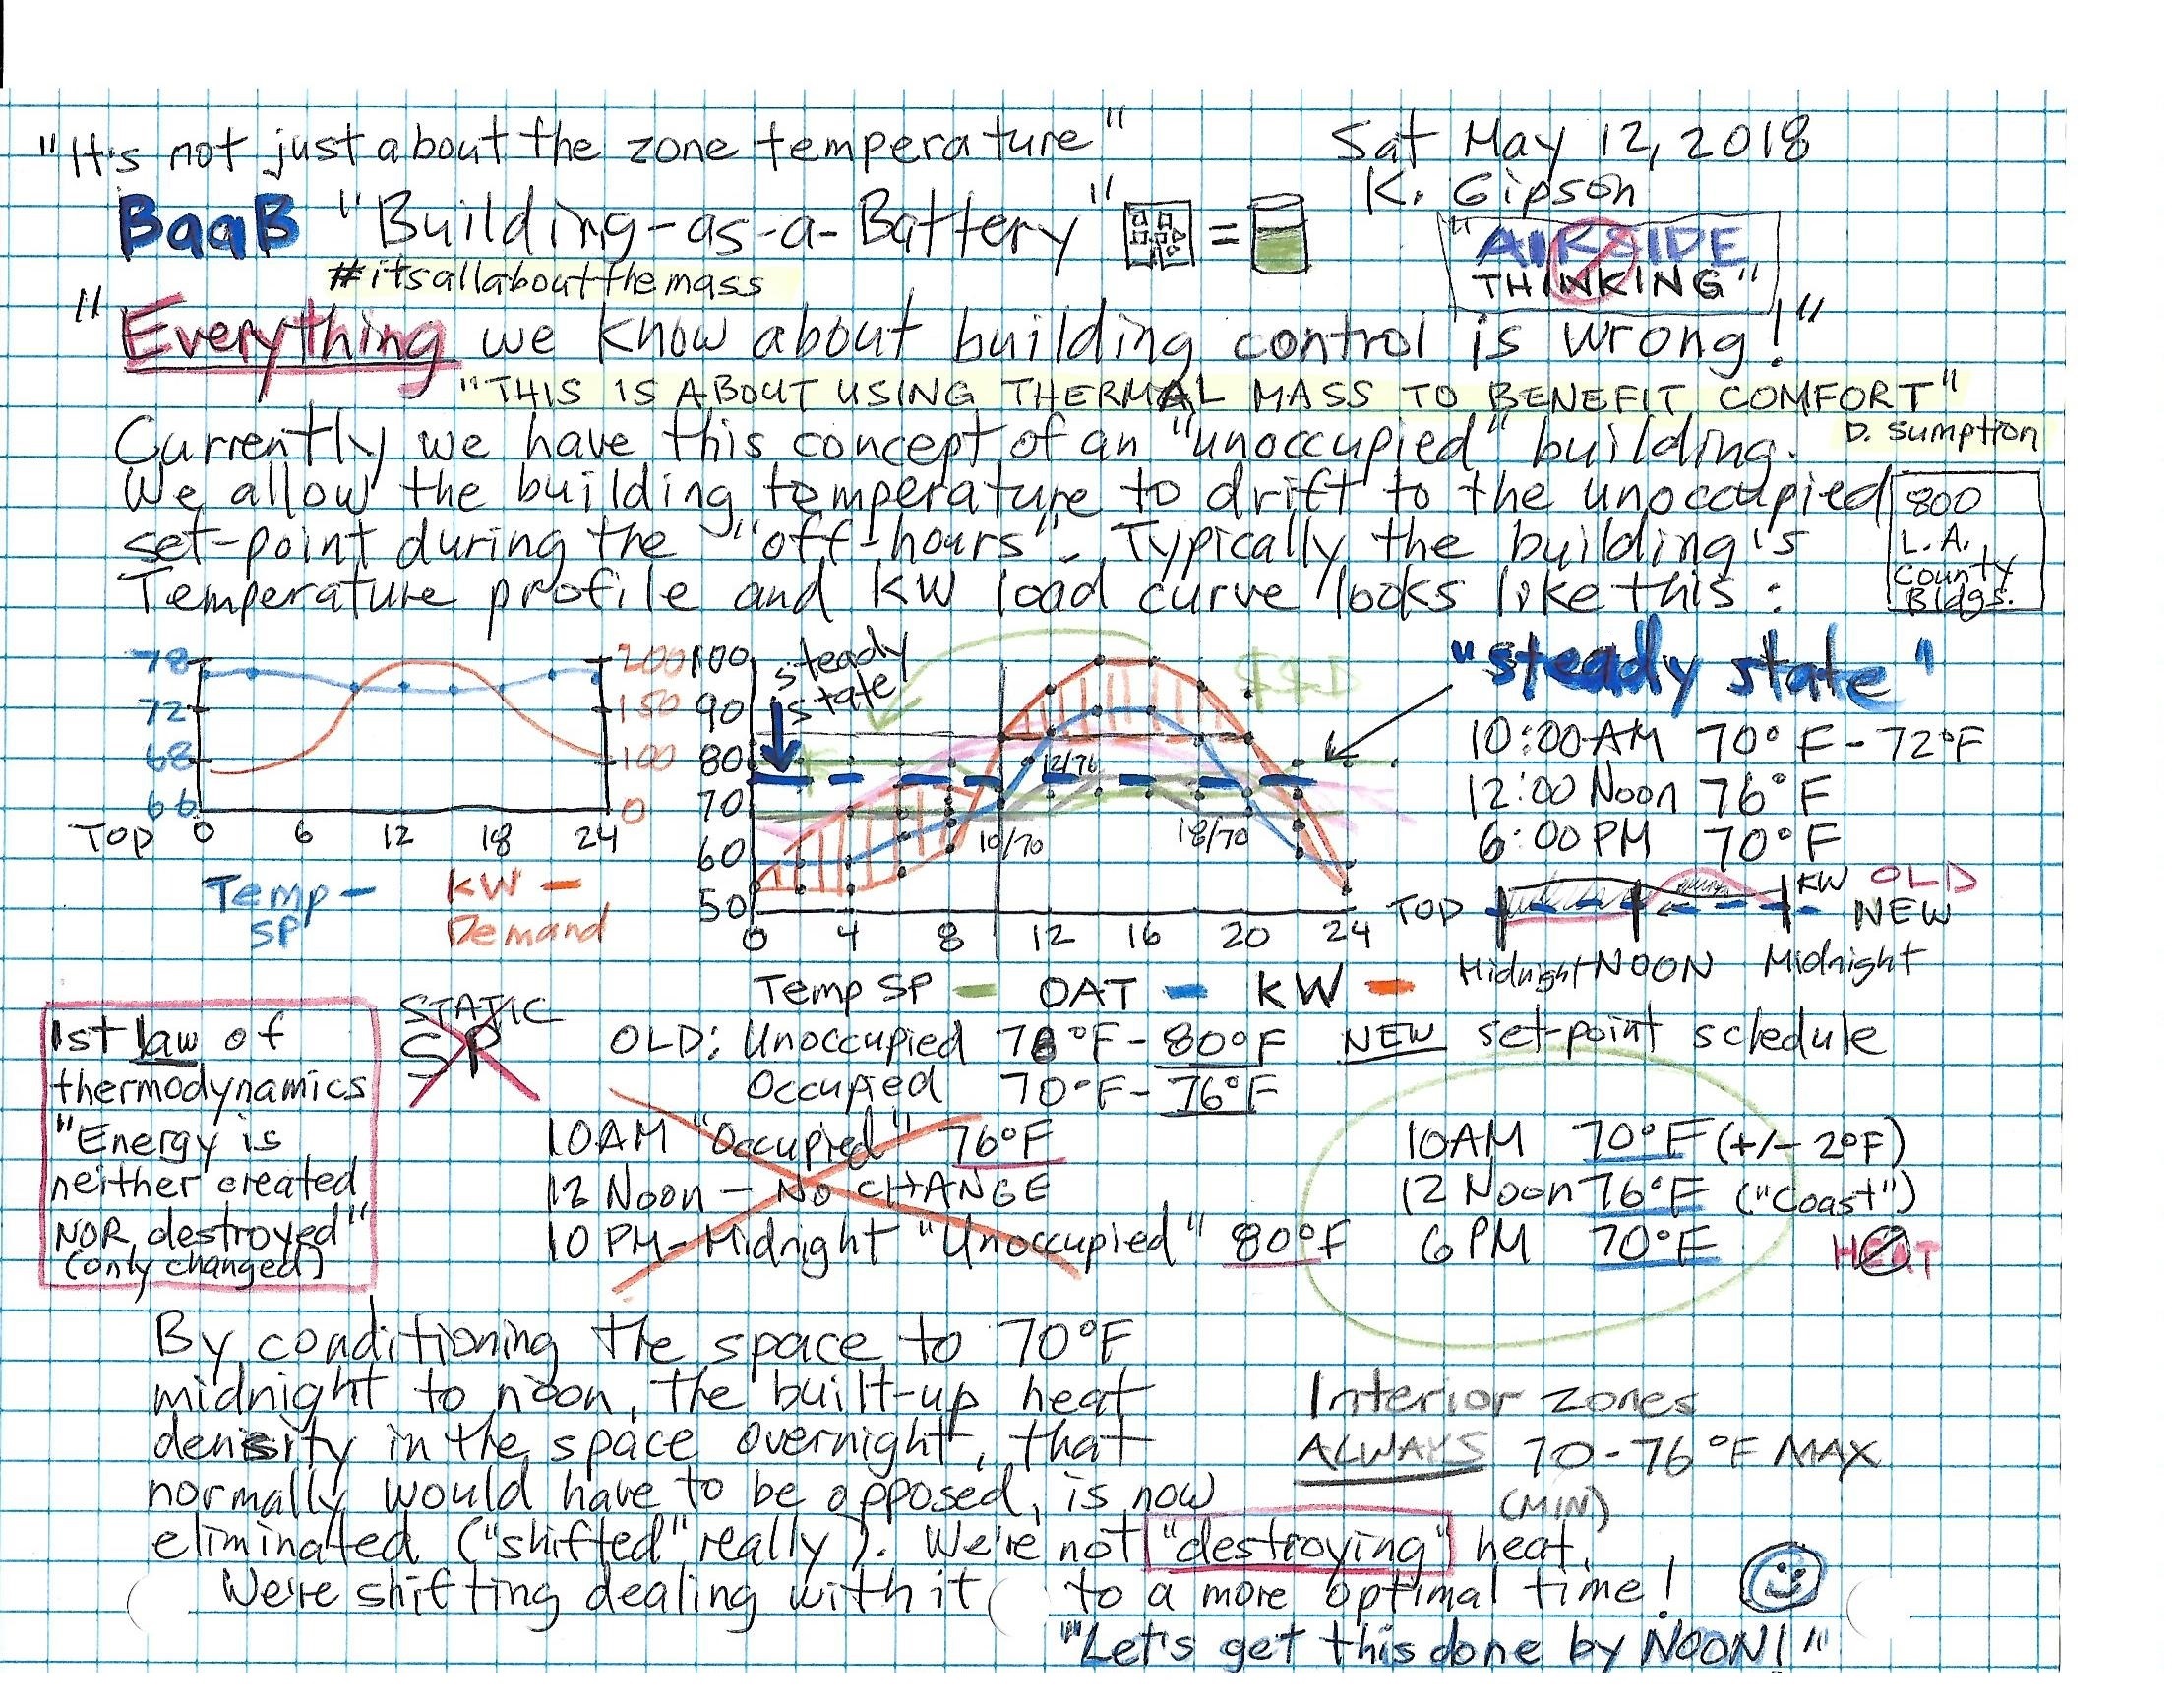 "It's not just about the zone temperature"
Sat May 12, 2018
K. Gipson
BaaB "Building-as-a-Battery" =
"AIRSIDE
THINKING"
#itsallaboutthemass
"Everything we know about building control is wrong!"
"THIS IS ABOUT USING THERMAL MASS TO BENEFIT COMFORT"
D. Sumption
Currently we have this concept of an "unoccupied" building.
We allow the building temperature to drift to the unoccupied
set-point during the "off-hours". Typically the building's
Temperature profile and KW load curve looks like this:
800
L.A.
County
Bldgs.
78
72
68
66
200
150
100
0
TOD 0 6 12 18 24
Temp
SP
KW
Demand
100
90
80
70
60
50
steady
state
$$$
12/76
10/70
18/70
0 4 8 12 16 20 24
Temp SP OAT KW
"steady state"
10:00 AM 70°F-72°F
12:00 Noon 76°F
6:00 PM 70°F
KW OLD
TOD NEW
Midnight NOON Midnight
1st law of
thermodynamics
"Energy is
neither created
NOR destroyed"
(only changed)
STATIC
SP
OLD: Unoccupied 78°F-80°F
Occupied 70°F-76°F
10AM "Occupied" 76°F
12 Noon - NO CHANGE
10 PM-Midnight "Unoccupied" 80°F
NEW set-point schedule
10AM 70°F (+/- 2°F)
12 Noon 76°F ("Coast")
6 PM 70°F
HEAT
By conditioning the space to 70°F
midnight to noon, the built-up heat
density in the space overnight, that
normally would have to be opposed, is now
eliminated ("shifted" really). We're not "destroying" heat.
We're shifting dealing with it to a more optimal time!
Interior zones
ALWAYS 70-76°F MAX
(MIN)
"Let's get this done by NOON!"